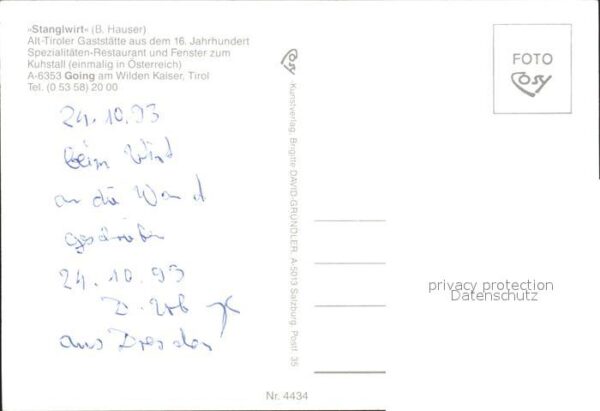 »Stanglwirt« (B. Hauser)
Alt-Tiroler Gaststätte aus dem 16. Jahrhundert
Spezialitäten-Restaurant und Fenster zum
Kuhstall (einmalig in Österreich)
A-6353 Going am Wilden Kaiser, Tirol
Tel. (0 53 58) 20 00
24.10.93
beim Wirt
an die Wand
geschrieben
24.10.93
D.
aus Dresden
Cosy
Kunstverlag: Brigitte DAVID-GRÜNDLER, A-5013 Salzburg, Postf. 35
FOTO
Cosy
privacy protection
Datenschutz
Nr. 4434